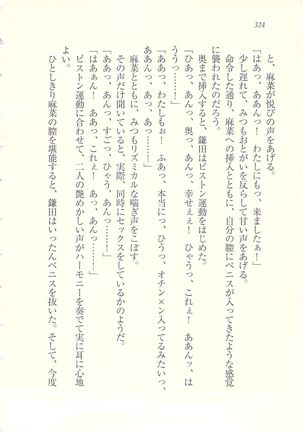 324
と、麻菜が悦びの声をあげる。
「はあっ、ああんっ！　わたしにもっ、来ましたぁ！」
少し遅れて、みつもおとがいを反らして甘い声をあげる。
命令した通り、麻菜への挿入とともに、自分の膣にペニスが入ってきたような感覚
に襲われたのだろう。
奥まで挿入すると、鎌田はピストン運動をはじめた。
「ひあっ、あんっ、奥っ、あんっ、幸せぇぇ！　ひゃうっ、これぇ！　ああんッ、は
ううっ……！」
「ああっ、わたしもぉ！　ふあっ、本当にっ、ひうっ、オチン×ン入ってるみたいっ、
ああんっ！　あっ、あっ……！」
麻菜とともに、みつもリズミカルな喘ぎ声をこぼす。
その声だけ聞いていると、実際、同時にセックスをしているかのようだ。
「ああっ、あんっ、すごっ、ひゃう、あんっ……！」
「はぁぁん！　ああっ、これぇ！　あっ、あんっ……！」
ピストン運動に合わせて、二人の艶めかしい声がハーモニーを奏でて実に耳に心地
よい。
ひとしきり麻菜の膣を堪能すると、鎌田はいったんペニスを抜いた。そして、今度